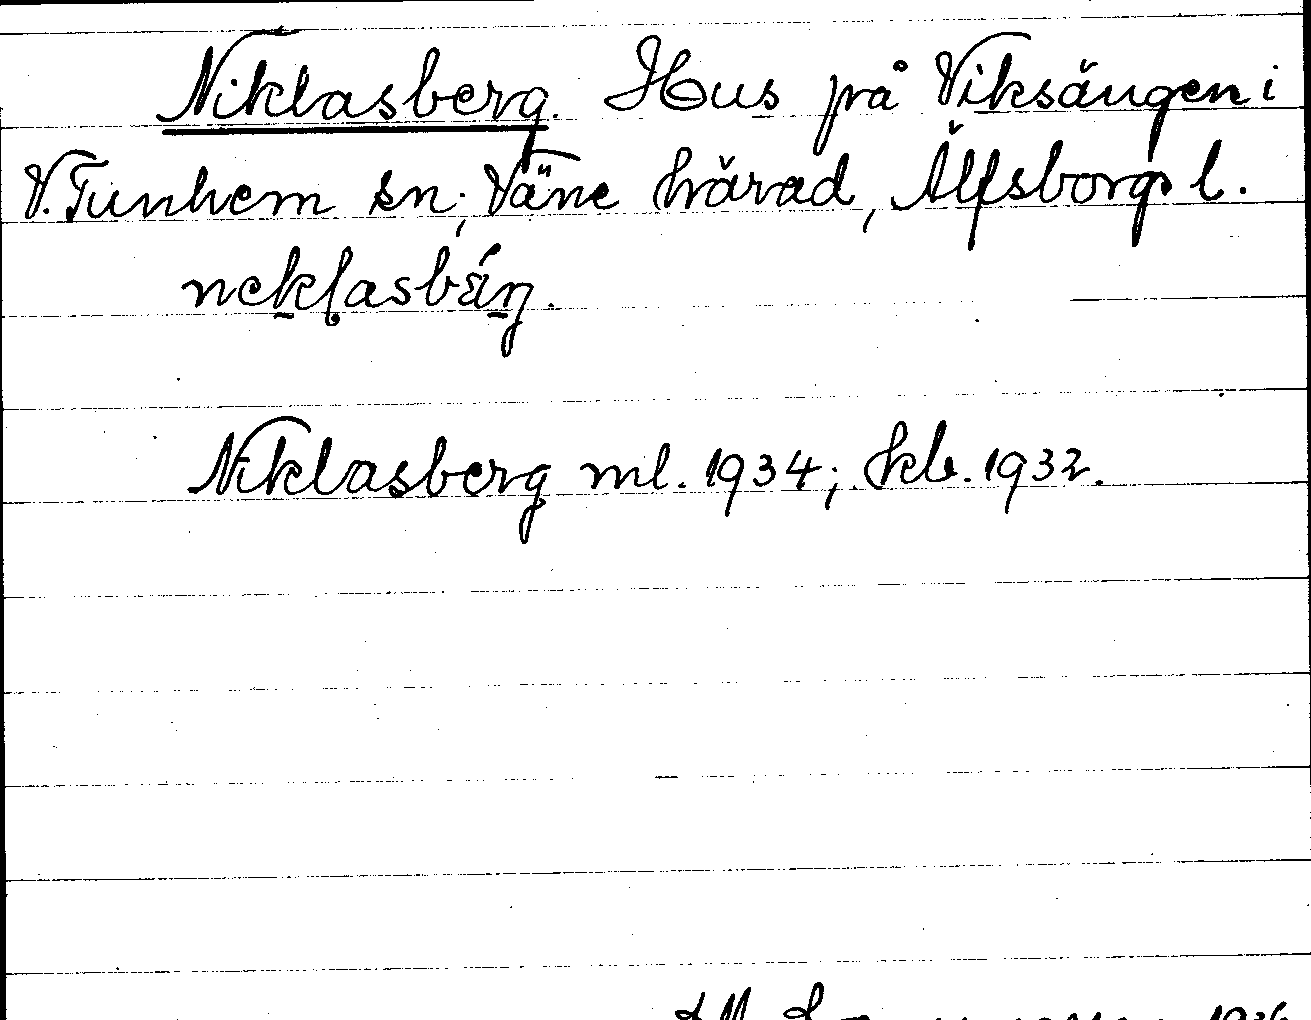 Niklasberg. Hus på Viksängen i
V. Tunhem sn; Väne härad, Älfsborgs l.
neklasbä́rj.
Niklasberg ml. 1934; kb. 1932.